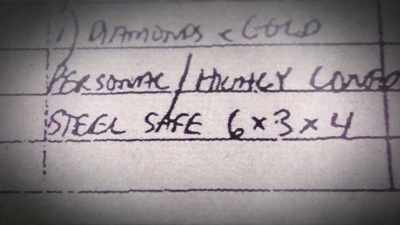 1) DIAMONDS & GOLD
PERSONAL / HIGHLY
STEEL SAFE 6×3×4